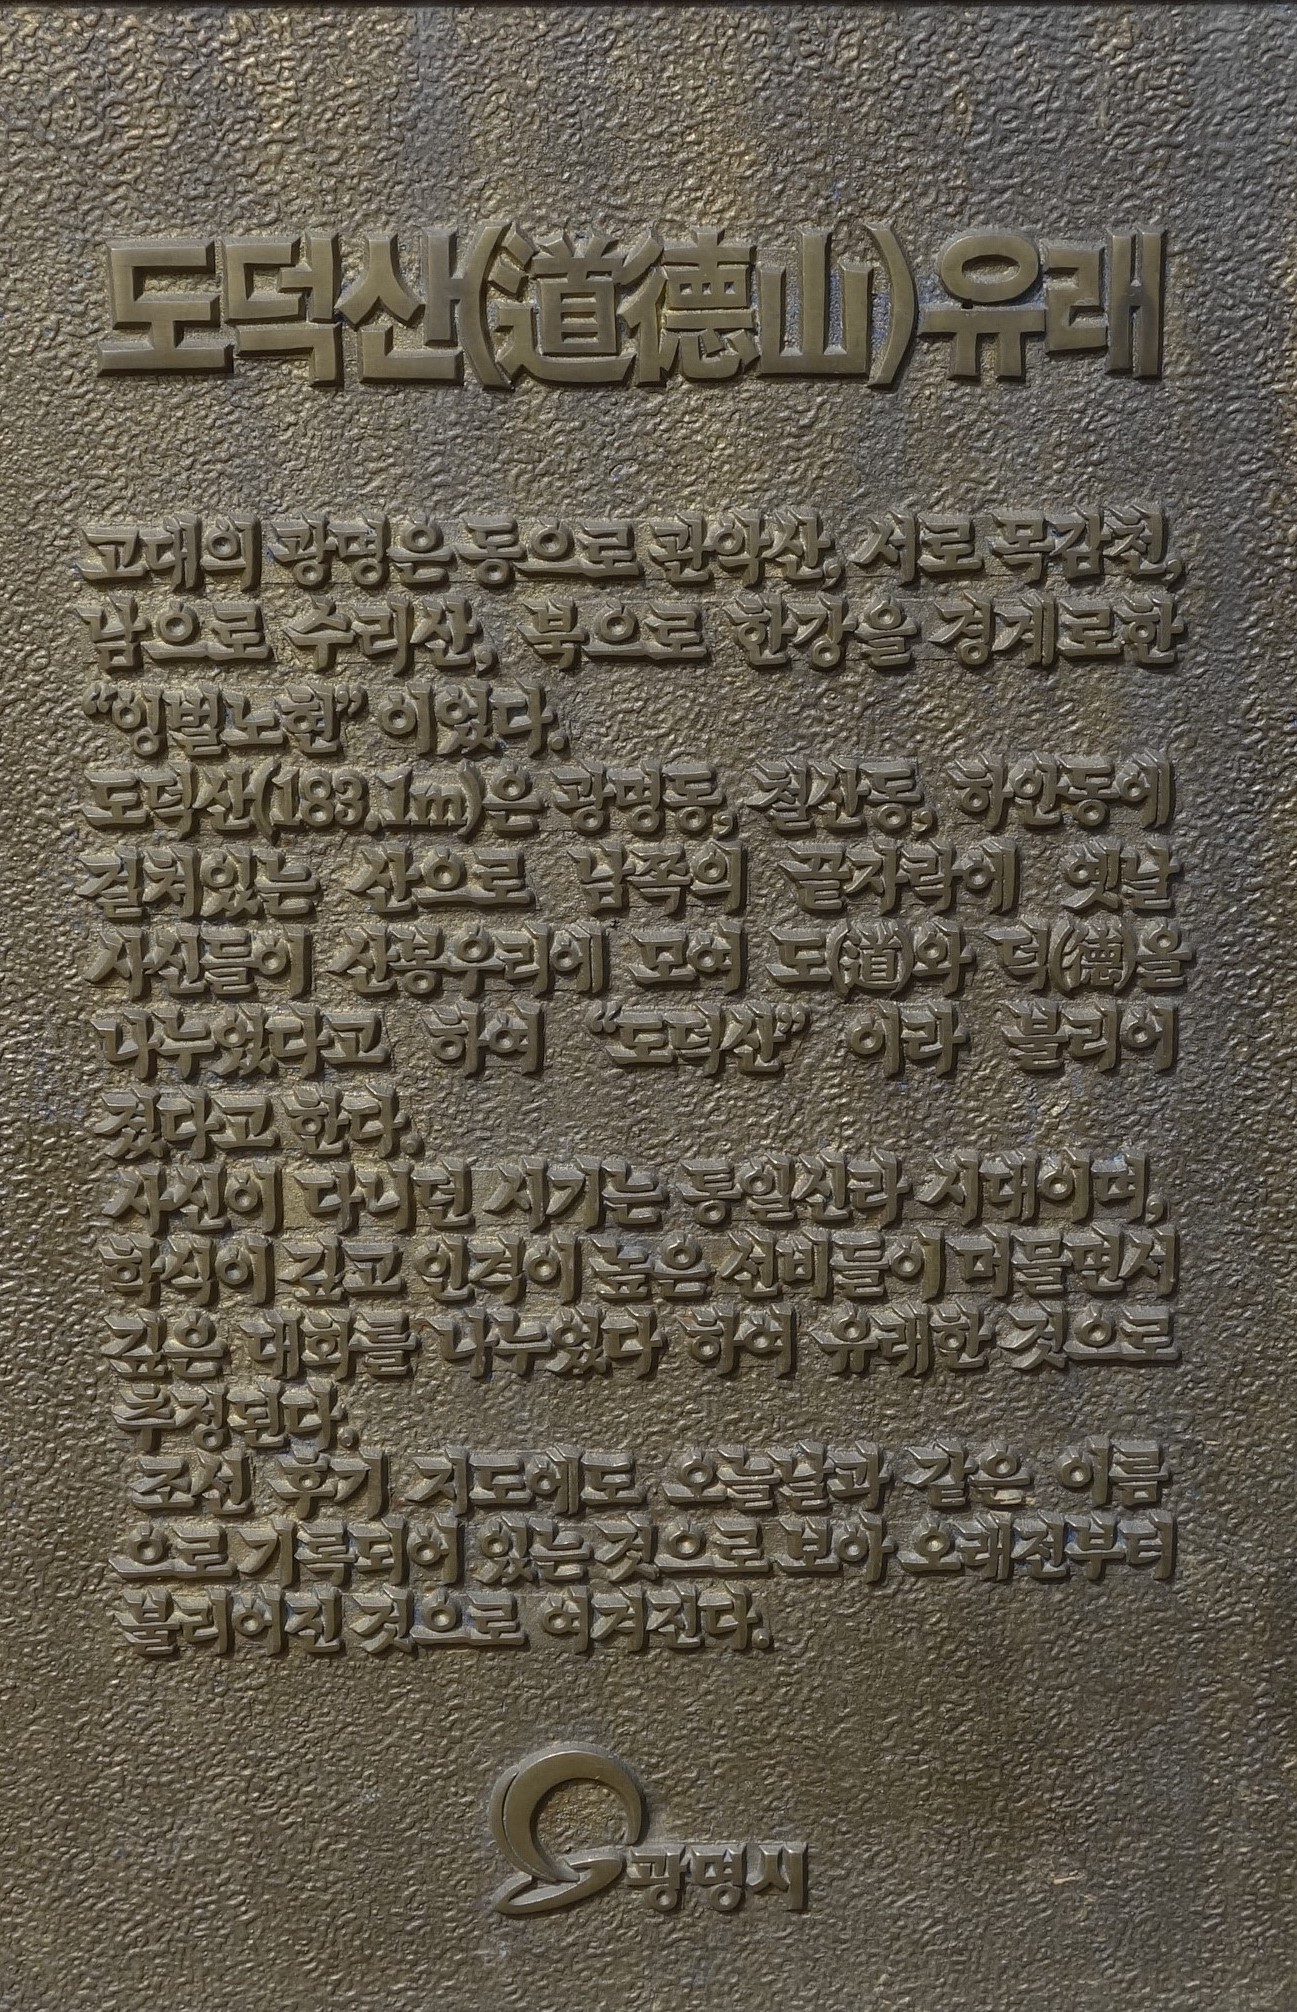 도덕산(道德山)유래
고대의 광명은 동으로 관악산, 서로 목감천,
남으로 수리산, 북으로 한강을 경계로한
“잉벌노현” 이었다.
도덕산(183.1m)은 광명동, 철산동, 하안동에
걸쳐있는 산으로 남쪽의 끝자락에 옛날
사신들이 산봉우리에 모여 도(道)와 덕(德)을
나누었다고 하여 “도덕산” 이라 불리어
졌다고 한다.
사신이 다니던 시기는 통일신라 시대이며,
학식이 깊고 인격이 높은 선비들이 머물면서
깊은 대화를 나누었다 하여 유래한 것으로
추정된다.
조선 후기 지도에도 오늘날과 같은 이름
으로 기록되어 있는 것으로 보아 오래전부터
불리어진 것으로 여겨진다.
광명시